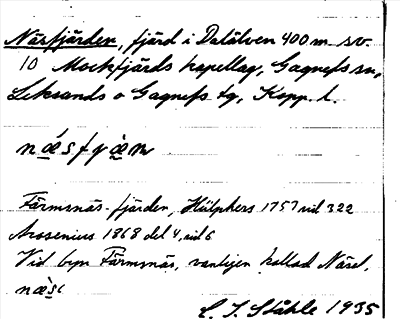 Näsfjärden, fjärd i Dalälven 400 m sv.
10 Mockfjärds kapellag, Gagnefs sn,
Leksands o Gagnefs tg, Kopp. l.
næ̀sfyæ̀n
Färmsnäs-fjärden, Hülphers 1757 sid 322
Arosenius 1868 del 4, sid 6
Vid byn Färmsnäs, vanligen kallad Näset,
C. I. Ståhle 1935